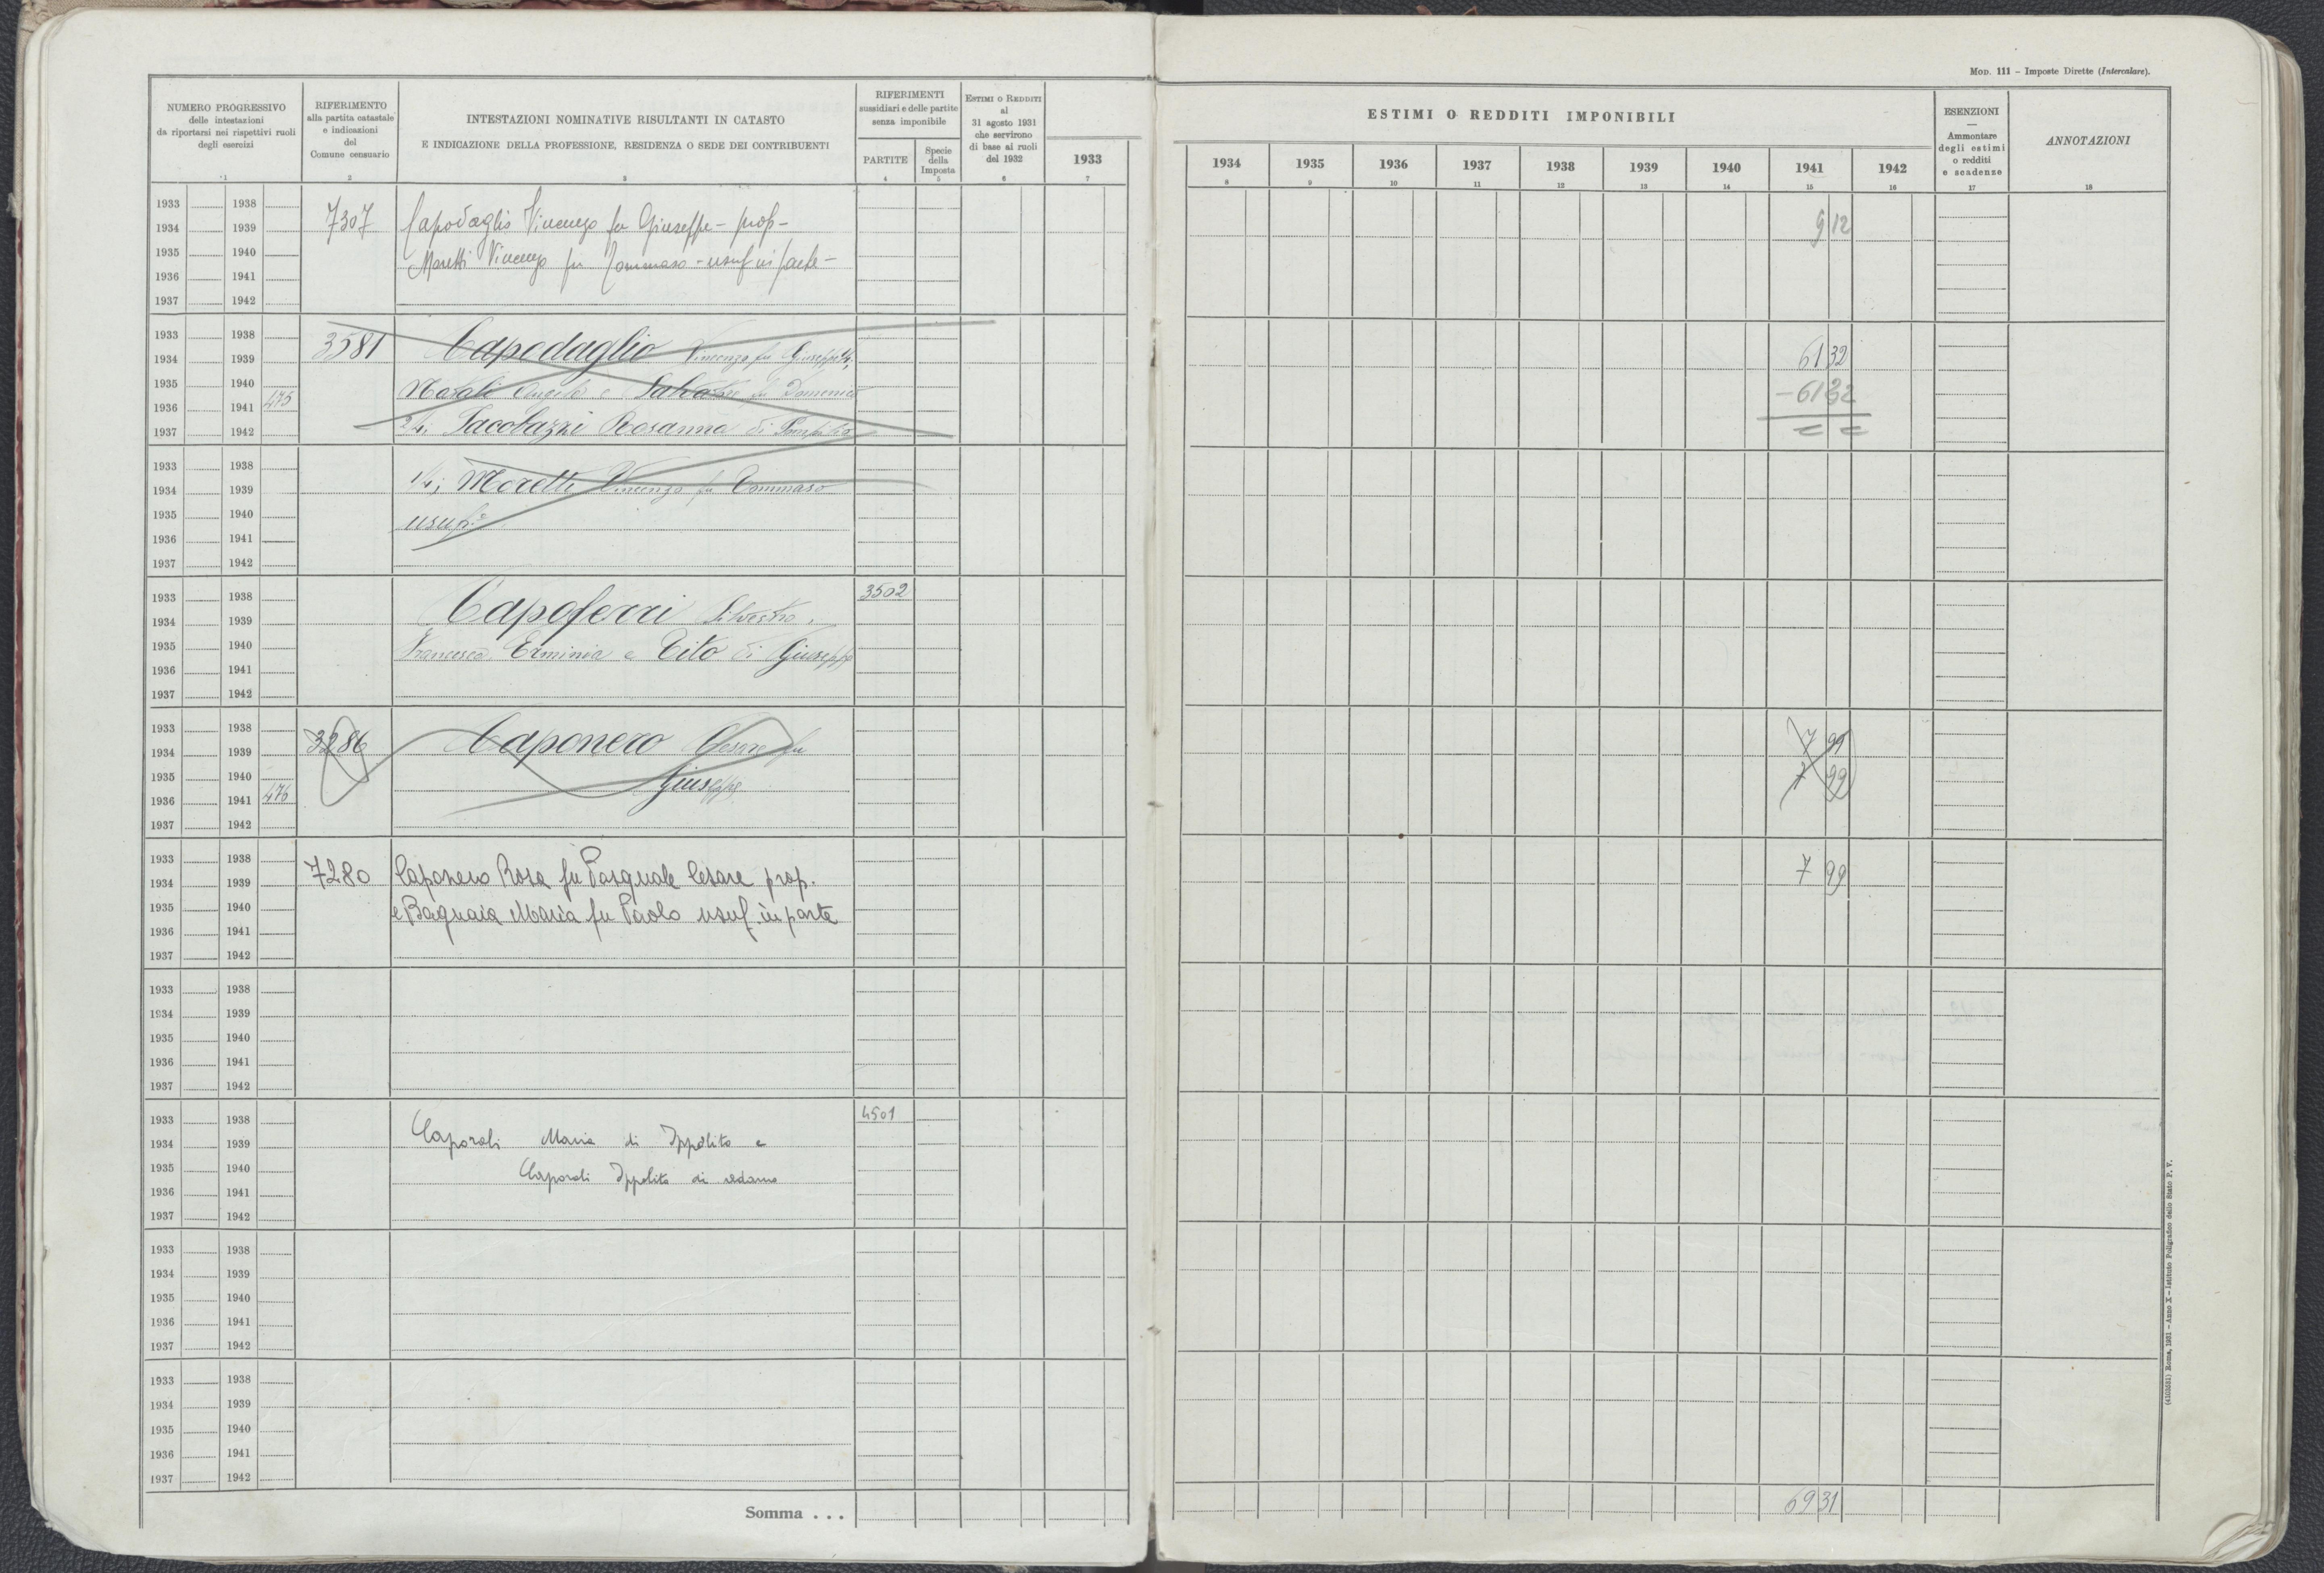 MOD. 111 – Imposte Dirette (Intercalare).
NUMERO PROGRESSIVO
delle intestazioni
da riportarsi nei rispettivi ruoli
degli esercizi
1
RIFERIMENTO
alla partita catastale
e indicazioni
del
Comune censuario
2
INTESTAZIONI NOMINATIVE RISULTANTI IN CATASTO
E INDICAZIONE DELLA PROFESSIONE, RESIDENZA O SEDE DEI CONTRIBUENTI
3
RIFERIMENTI
sussidiari e delle partite
senza imponibile
PARTITE
4
Specie
della
Imposta
5
ESTIMI O REDDITI
al
31 agosto 1931
che servirono
di base ai ruoli
del 1932
6
ESTIMI O REDDITI IMPONIBILI
1933 1934 1935 1936 1937 1938 1939 1940 1941 1942
7 8 9 10 11 12 13 14 15 16
ESENZIONI
—
Ammontare
degli estimi
o redditi
e scadenze
17
ANNOTAZIONI
18
1933 1938
1934 1939 7307 Capodaglio Vincenzo fu Giuseppe – prop – 9 12
1935 1940 Moretti Vincenzo fu Tommaso – usuf in parte –
1936 1941
1937 1942
1933 1938
1934 1939 3581 Capodaglio Vincenzo fu Giuseppe 1/4, 61 32
1935 1940 Natali Angelo e Salvatore fu Domenico – 61 32
1936 1941 475
1937 1942 2/4, Iacobazzi Rosanna di Pompilio = =
1933 1938
1934 1939 1/4; Moretti Vincenzo fu Tommaso
1935 1940 usufr.
1936 1941
1937 1942
1933 1938 3502
1934 1939 Capoferri Silvestro,
1935 1940 Francesco, Erminia e Tito di Giuseppe
1936 1941
1937 1942
1933 1938
1934 1939 3286 Caponero Cesare fu 7 99
1935 1940 Giuseppe 7 99
1936 1941 476
1937 1942
1933 1938
1934 1939 7280 Caponero Rosa fu Pasquale Cesare prop. 7 99
1935 1940 e Bagnaia Maria fu Paolo usuf. in parte
1936 1941
1937 1942
1933 1938
1934 1939
1935 1940
1936 1941
1937 1942
1933 1938 4501
1934 1939 Caporali Maria di Ippolito e
1935 1940 Caporali Ippolito di
1936 1941
1937 1942
1933 1938
1934 1939
1935 1940
1936 1941
1937 1942
1933 1938
1934 1939
1935 1940
1936 1941
1937 1942
Somma . . . 69 31
(4103531) Roma, 1931 – Anno X – Istituto Poligrafico dello Stato P. V.